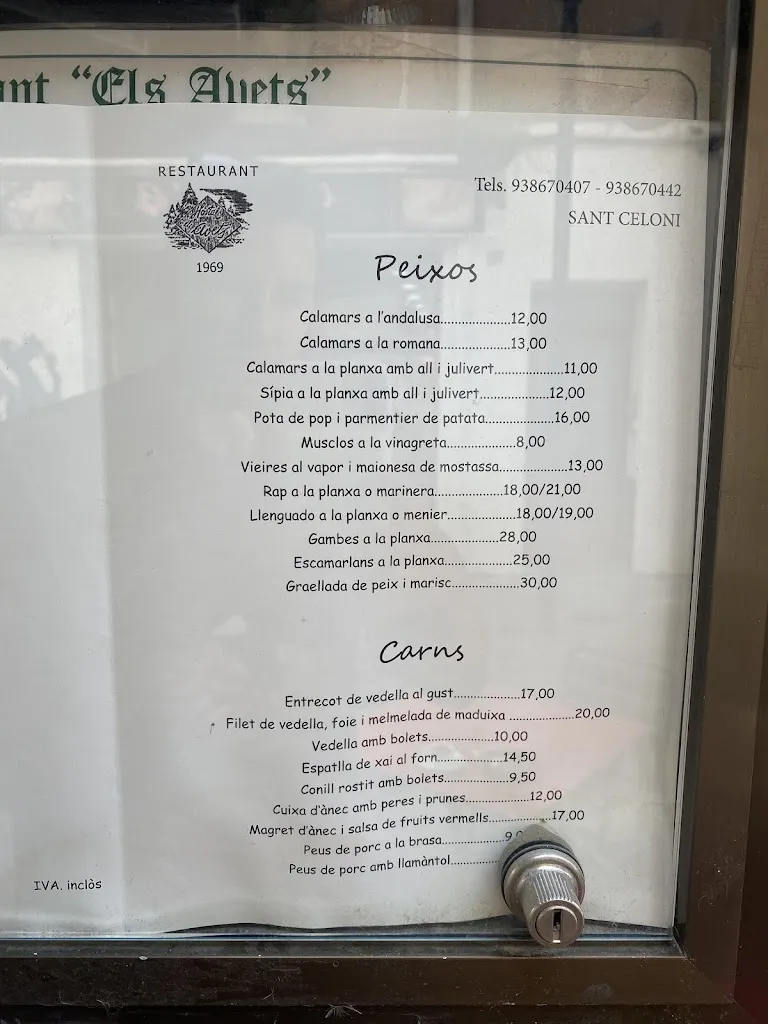 "Els Avets"
RESTAURANT
1969
Tels. 938670407 - 938670442
SANT CELONI
Peixos
Calamars a l'andalusa....................12,00
Calamars a la romana...................13,00
Calamars a la planxa amb all i julivert....................11,00
Sípia a la planxa amb all i julivert....................12,00
Pota de pop i parmentier de patata....................16,00
Musclos a la vinagreta....................8,00
Vieires al vapor i maionesa de mostassa....................13,00
Rap a la planxa o marinera....................18,00/21,00
Llenguado a la planxa o menier....................18,00/19,00
Gambes a la planxa....................28,00
Escamarlans a la planxa....................25,00
Graellada de peix i marisc....................30,00
Carns
Entrecot de vedella al gust....................17,00
Filet de vedella, foie i melmelada de maduixa ....................20,00
Vedella amb bolets....................10,00
Espatlla de xai al forn....................14,50
Conill rostit amb bolets....................9,50
Cuixa d'ànec amb peres i prunes....................12,00
Magret d'ànec i salsa de fruits vermells....................17,00
Peus de porc a la brasa....................
Peus de porc amb llamàntol...............
IVA. inclòs